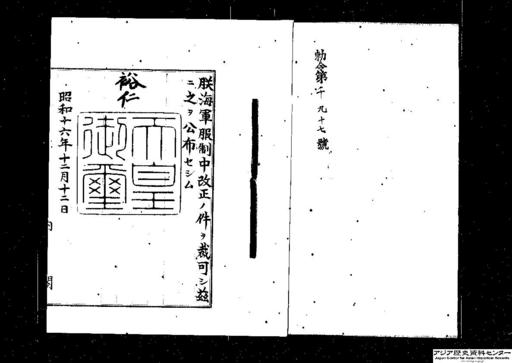 勅令第千九十七號
朕海軍服制中改正ノ件ヲ裁可シ茲
ニ之ヲ公布セシム
裕仁
天皇
御璽
昭和十六年十二月十二日
内閣
アジア歴史資料センター
Japan Center for Asian Historical Records